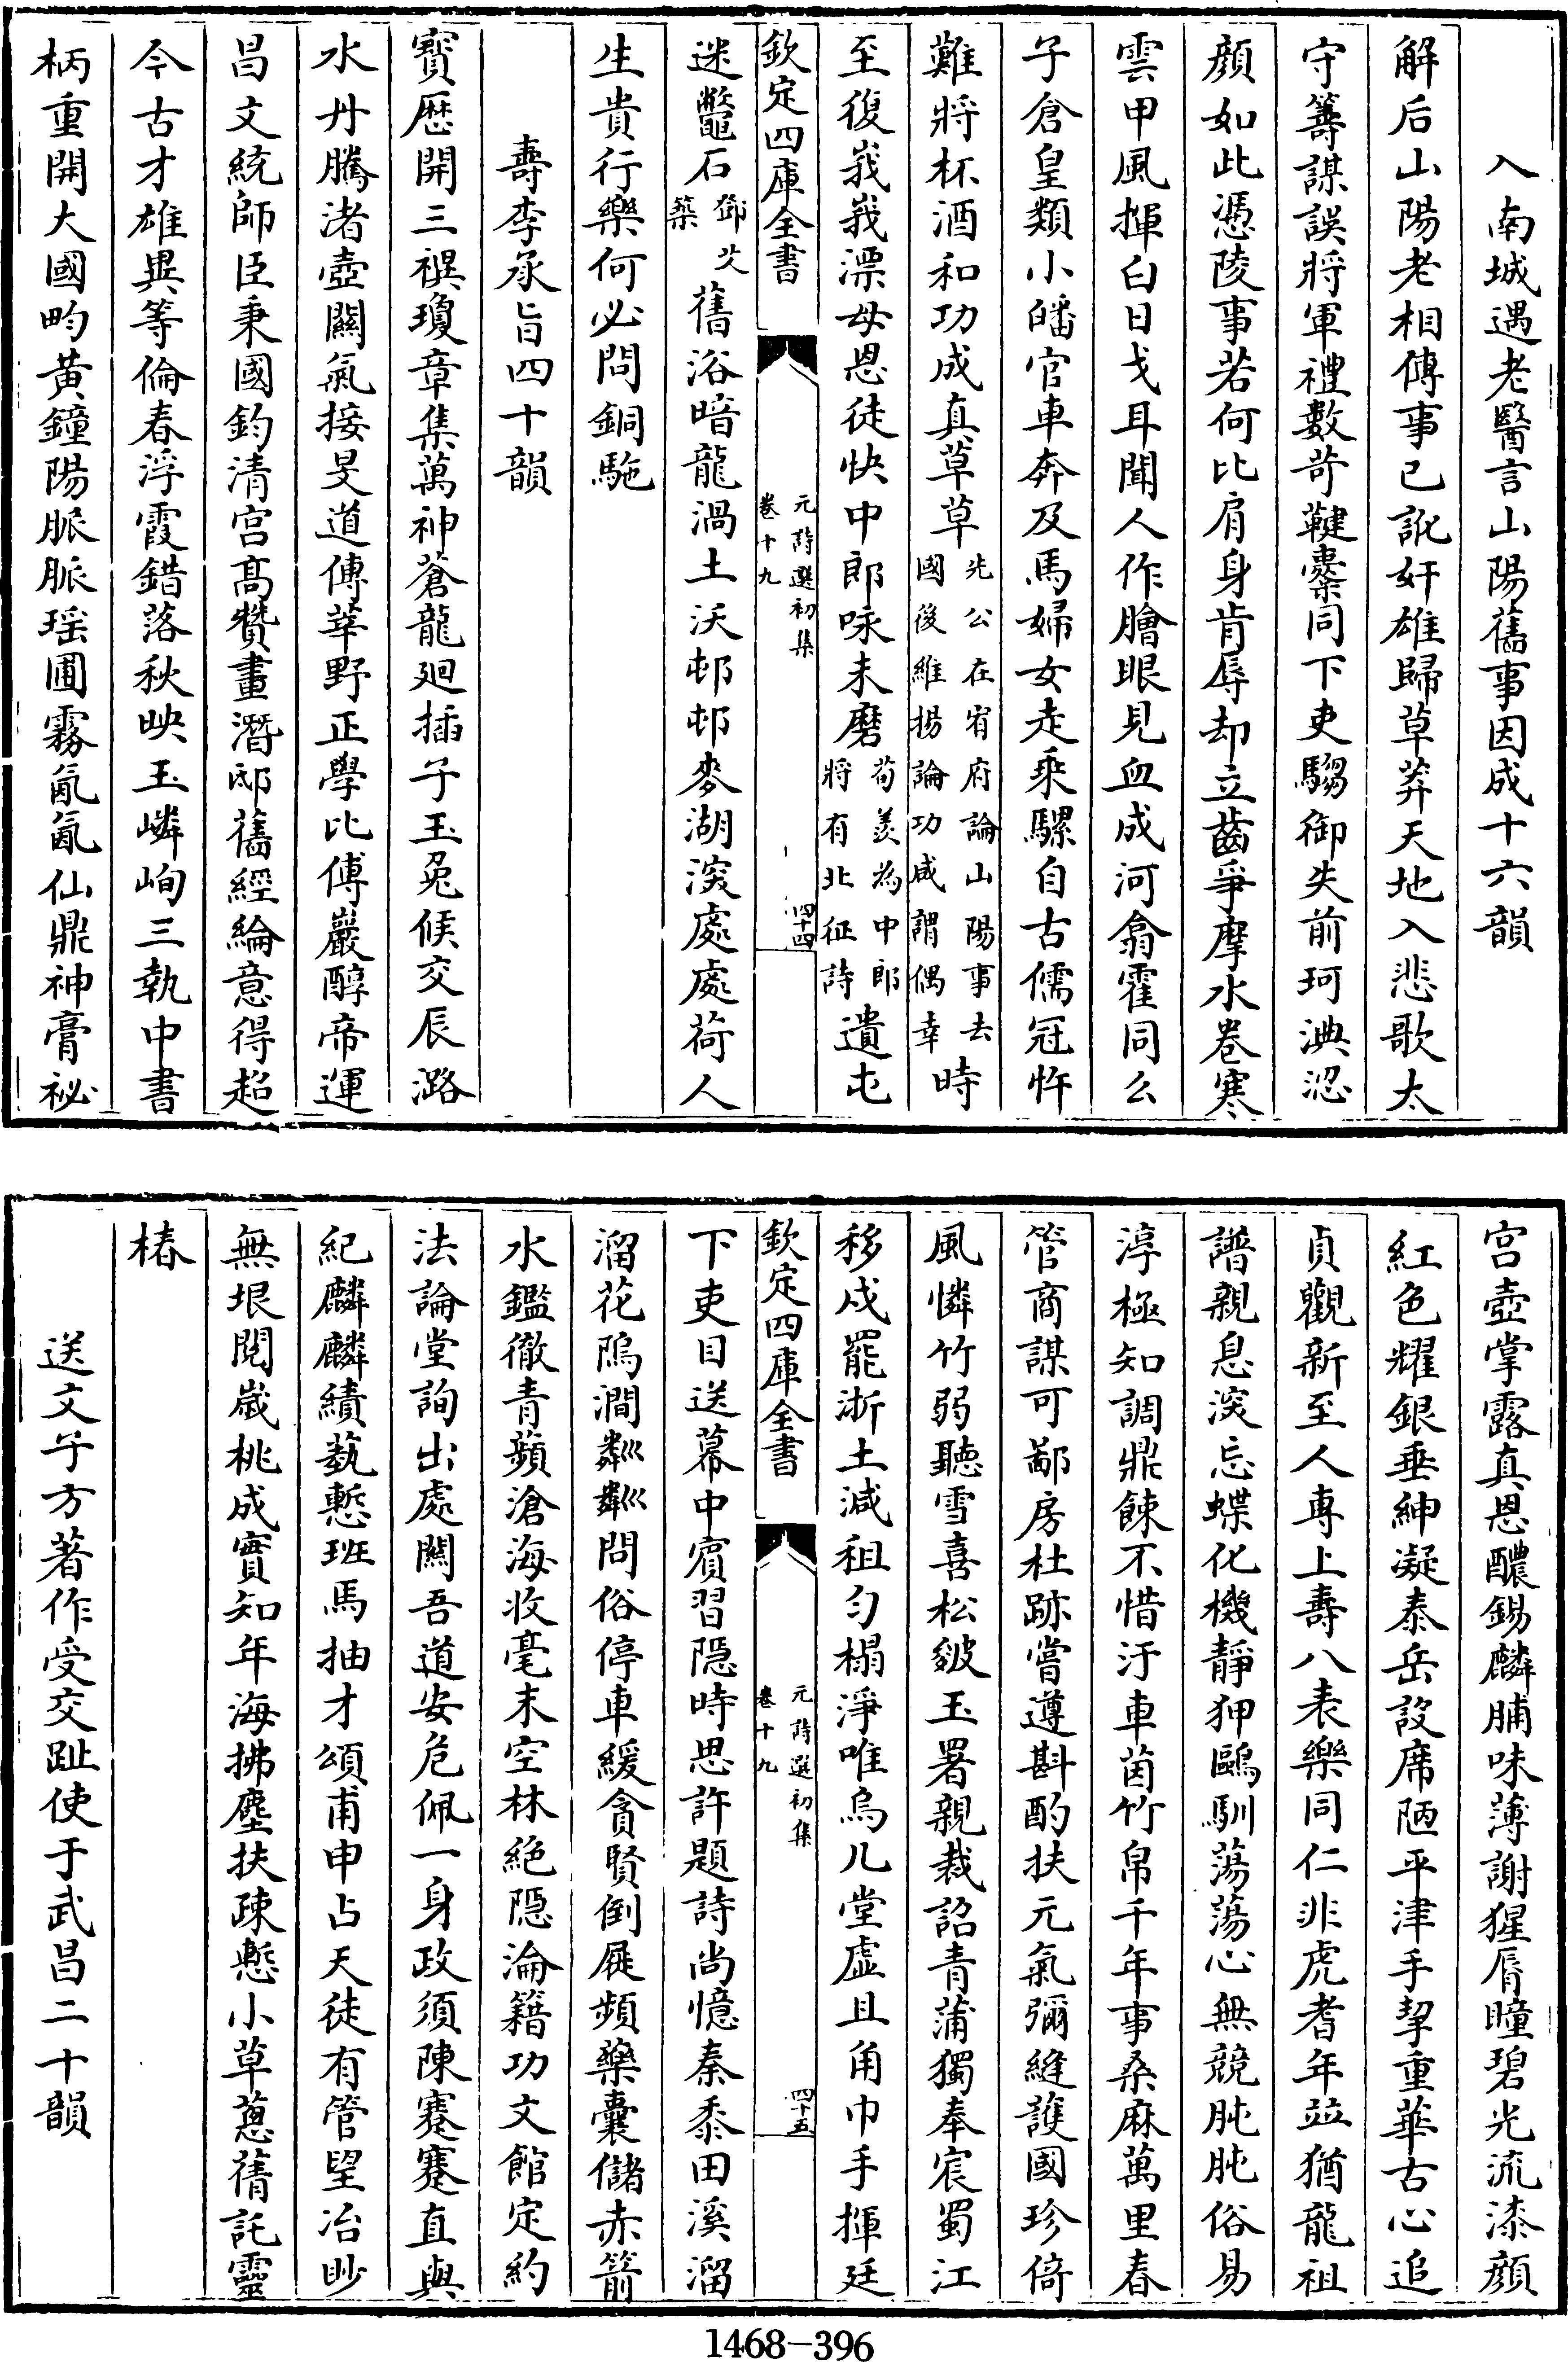 入南城遇老醫言山陽舊事因成十六韻
解后山陽老相傳事已訛奸雄歸草莽天地入悲歌太
守籌謀誤將軍禮數苛鞬櫜同下吏騶御失前珂淟涊
顔如此憑陵事若何比肩身肯辱却立齒爭摩水卷寒
雲甲風揮白日戈耳聞人作膾眼見血成河翕霍同么
子倉皇類小皤官車奔及馬婦女走乘騾自古儒冠忤
難將杯酒和功成真草草先公在宥府論山陽事去國後維揚論功咸謂偶幸時
至復峩峩漂母恩徒快中郎咏未磨荀羨為中郎將有北征詩遺屯
欽定四庫全書
元詩選初集
卷十九
四十四
迷鼈石鄧艾築舊浴暗龍渦土沃邨邨麥湖深處處荷人
生貴行樂何必問銅駞
壽李承旨四十韻
寶歷開三禩瓊章集萬神蒼龍廻插子玉兎候交辰潞
水丹騰渚壺闗氣接旻道傳莘野正學比傅巖醇帝運
昌文統師臣秉國鈞清宫髙贊畫潛邸舊經綸意得超
今古才雄異等倫春浮霞錯落秋映玉嶙峋三執中書
柄重開大國畇黃鐘陽脈脈瑶圃霧氤氤仙鼎神膏祕
宫壺掌露真恩醲錫麟脯味薄謝猩脣瞳碧光流漆顔
紅色耀銀垂紳凝泰岳設席陋平津手挈重華古心追
貞觀新至人專上壽八表樂同仁非虎耆年竝猶龍祖
譜親息深忘蝶化機靜狎鷗馴蕩蕩心無競肫肫俗易
淳極知調鼎餗不惜汙車茵竹帛千年事桑麻萬里春
管商謀可鄙房杜跡嘗遵斟酌扶元氣彌縫護國珍倚
風憐竹弱聽雪喜松皴玉署親裁詔青蒲獨奉宸蜀江
移戍罷浙土減租勻榻淨唯烏几堂虛且角巾手揮廷
欽定四庫全書
元詩選初集
卷十九
四十五
下吏目送幕中賓習隱時思許題詩尚憶秦黍田溪溜
溜花隖澗粼粼問俗停車緩貪賢倒屐頻藥囊儲赤箭
水鑑徹青蘋滄海收毫末空林絕隱淪籍功文館定約
法論堂詢出處闗吾道安危佩一身政須陳蹇蹇直與
紀麟麟績藝慙班馬抽才頌甫申占天徒有管望冶眇
無垠閱嵗桃成實知年海拂塵扶疎慙小草蔥蒨託靈
椿
送文子方著作受交趾使于武昌二十韻
1468-396